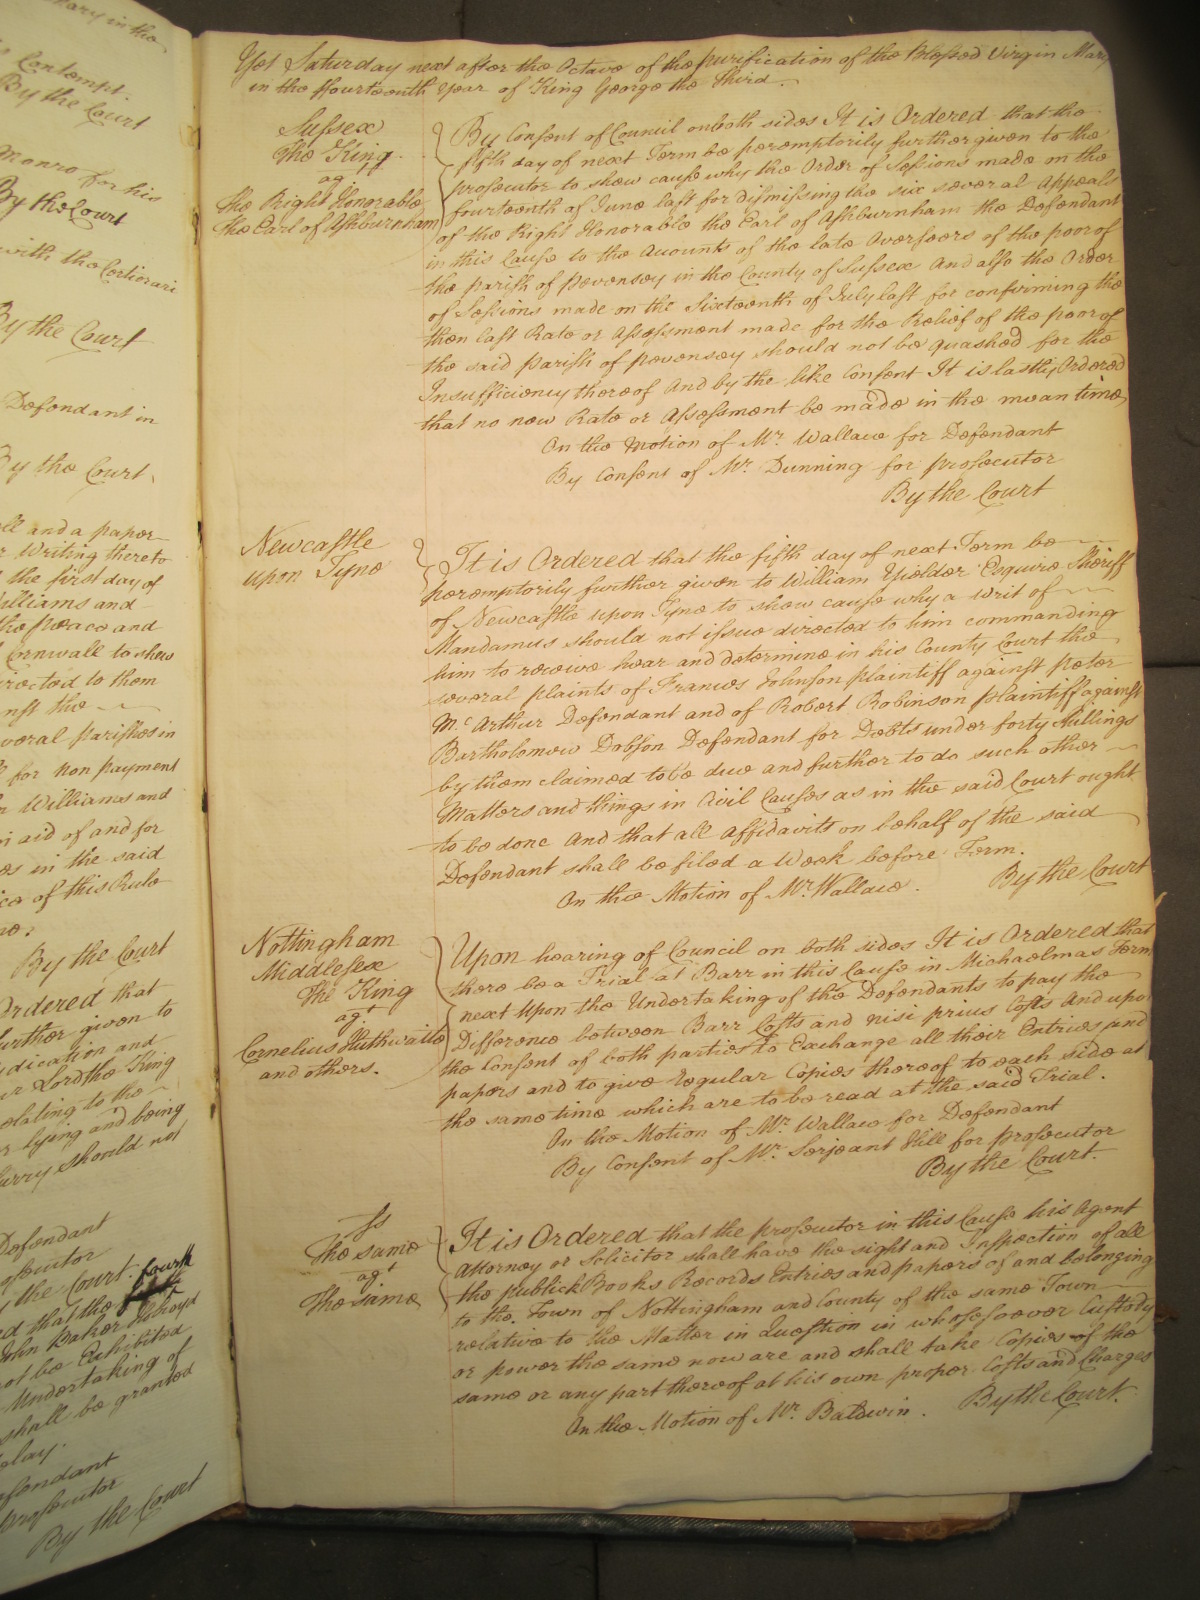 Mary in the
Contempt.
By the Court
Monro for his
By the Court
with the Certiorari
By the Court
Defendant in
By the Court.
and a paper
Writing thereto
the first day of
Williams and
the peace and
Cornwall to shew
directed to them
against the
several parishes in
for non payment
Williams and
in aid of and for
in the said
of this Rule
By the Court
Ordered that
further given to
and
Lord the King
relating to the
lying and being
should not
Defendant
prosecutor
the Court
that the fourth
John Baker Holroyd
not be Exhibited
Undertaking of
shall be granted
delay.
Defendant
prosecutor
By the Court
Yet Saturday next after the Octave of the purification of the Blessed Virgin Mary
in the ffourteenth year of King George the Third.
Sussex
The King
agt
The Right Honorable
The Earl of Ashburnham
By Consent of Council on both sides It is Ordered that the
fifth day of next Term be peremptorily further given to the
prosecutor to shew cause why the Order of Sessions made on the
fourteenth of June last for dismissing the six several Appeals
of the Right Honorable the Earl of Ashburnham the Defendant
in this Cause to the Accounts of the late Overseers of the poor of
the parish of pevensey in the County of Sussex And also the Order
of Sessions made on the Sixteenth of July last for confirming the
then last Rate or Assessment made for the Relief of the poor of
the said parish of pevensey should not be quashed for the
Insufficiency thereof And by the like Consent It is lastly Ordered
that no new Rate or Assessment be made in the mean time
On the Motion of Mr. Wallace for Defendant
By Consent of Mr. Dunning for prosecutor
By the Court
Newcastle
upon Tyne
It is Ordered that the fifth day of next Term be
peremptorily further given to William Yielder Esquire Sheriff
of Newcastle upon Tyne to shew cause why a Writ of
Mandamus should not issue directed to him commanding
him to receive hear and determine in his County Court the
several plaints of Frances Johnson plaintiff against peter
Mc. Arthur Defendant and of Robert Robinson plaintiff against
Bartholomew Dobson Defendant for Debts under forty shillings
by them claimed to be due and further to do such other
Matters and things in Civil Causes as in the said Court ought
to be done And that all Affidavits on behalf of the said
Defendant shall be filed a Week before Term.
On the Motion of Mr. Wallace. By the Court
Nottingham
Middlesex
The King
agt
Cornelius Huthwaite
and others.
Upon hearing of Council on both sides It is Ordered that
there be a Trial at Barr in this Cause in Michaelmas Term
next Upon the Undertaking of the Defendants to pay the
Difference between Barr Costs and nisi prius Costs And upon
the Consent of both parties to Exchange all their Entries and
papers and to give regular Copies thereof to each side at
the same time which are to be read at the said Trial.
On the Motion of Mr. Wallace for Defendant
By Consent of Mr. Serjeant Hill for prosecutor
By the Court.
Ss
The same
agt
The same
It is Ordered that the prosecutor in this Cause his Agent
Attorney or Solicitor shall have the sight and Inspection of all
the publick Books Records Entries and papers of and belonging
to the Town of Nottingham and County of the same Town
relative to the Matter in Question in whosesoever Custody
or power the same now are and shall take Copies of the
same or any part thereof at his own proper Costs and Charges
On the Motion of Mr. Baldwin. By the Court.